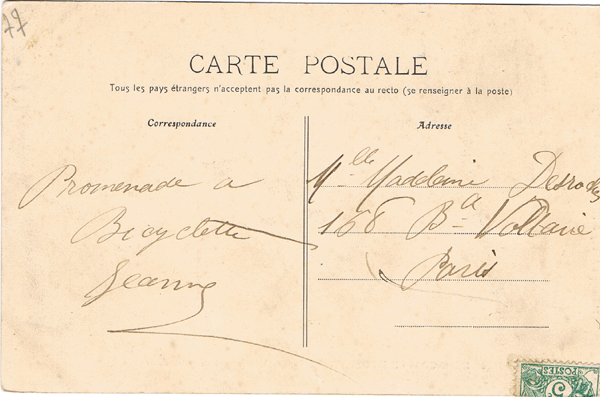 77
CARTE POSTALE
Tous les pays étrangers n'acceptent pas la correspondance au recto (se renseigner à la poste)
Correspondance
Promenade a
Bicyclette
Jeanne
Adresse
Mlle Madeleine
168 Bd Voltaire
Paris
POSTES
5